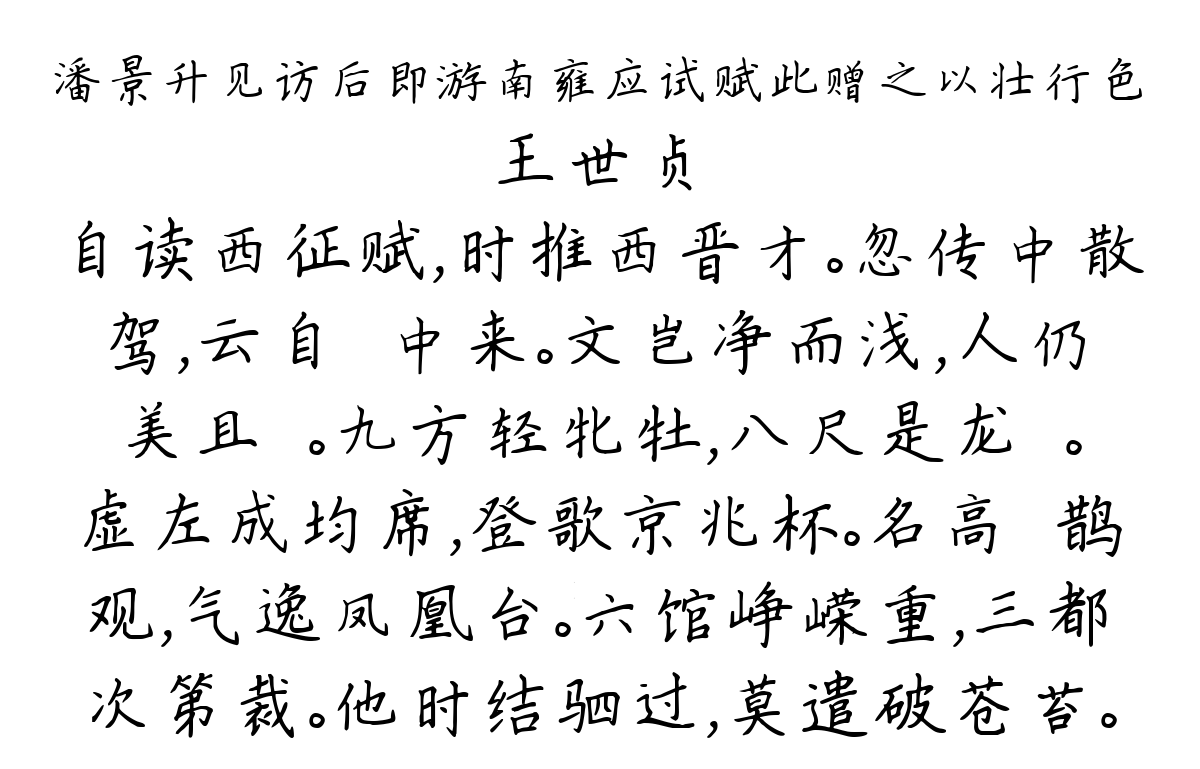 潘景升见访后即游南雍应试赋此赠之以壮行色
王世贞
自读西征赋,时推西晋才。忽传中散
驾,云自 中来。文岂净而浅,人仍
美且 。九方轻牝牡,八尺是龙 。
虚左成均席,登歌京兆杯。名高 鹊
观,气逸凤凰台。六馆峥嵘重,三都
次第裁。他时结驷过,莫遣破苍苔。